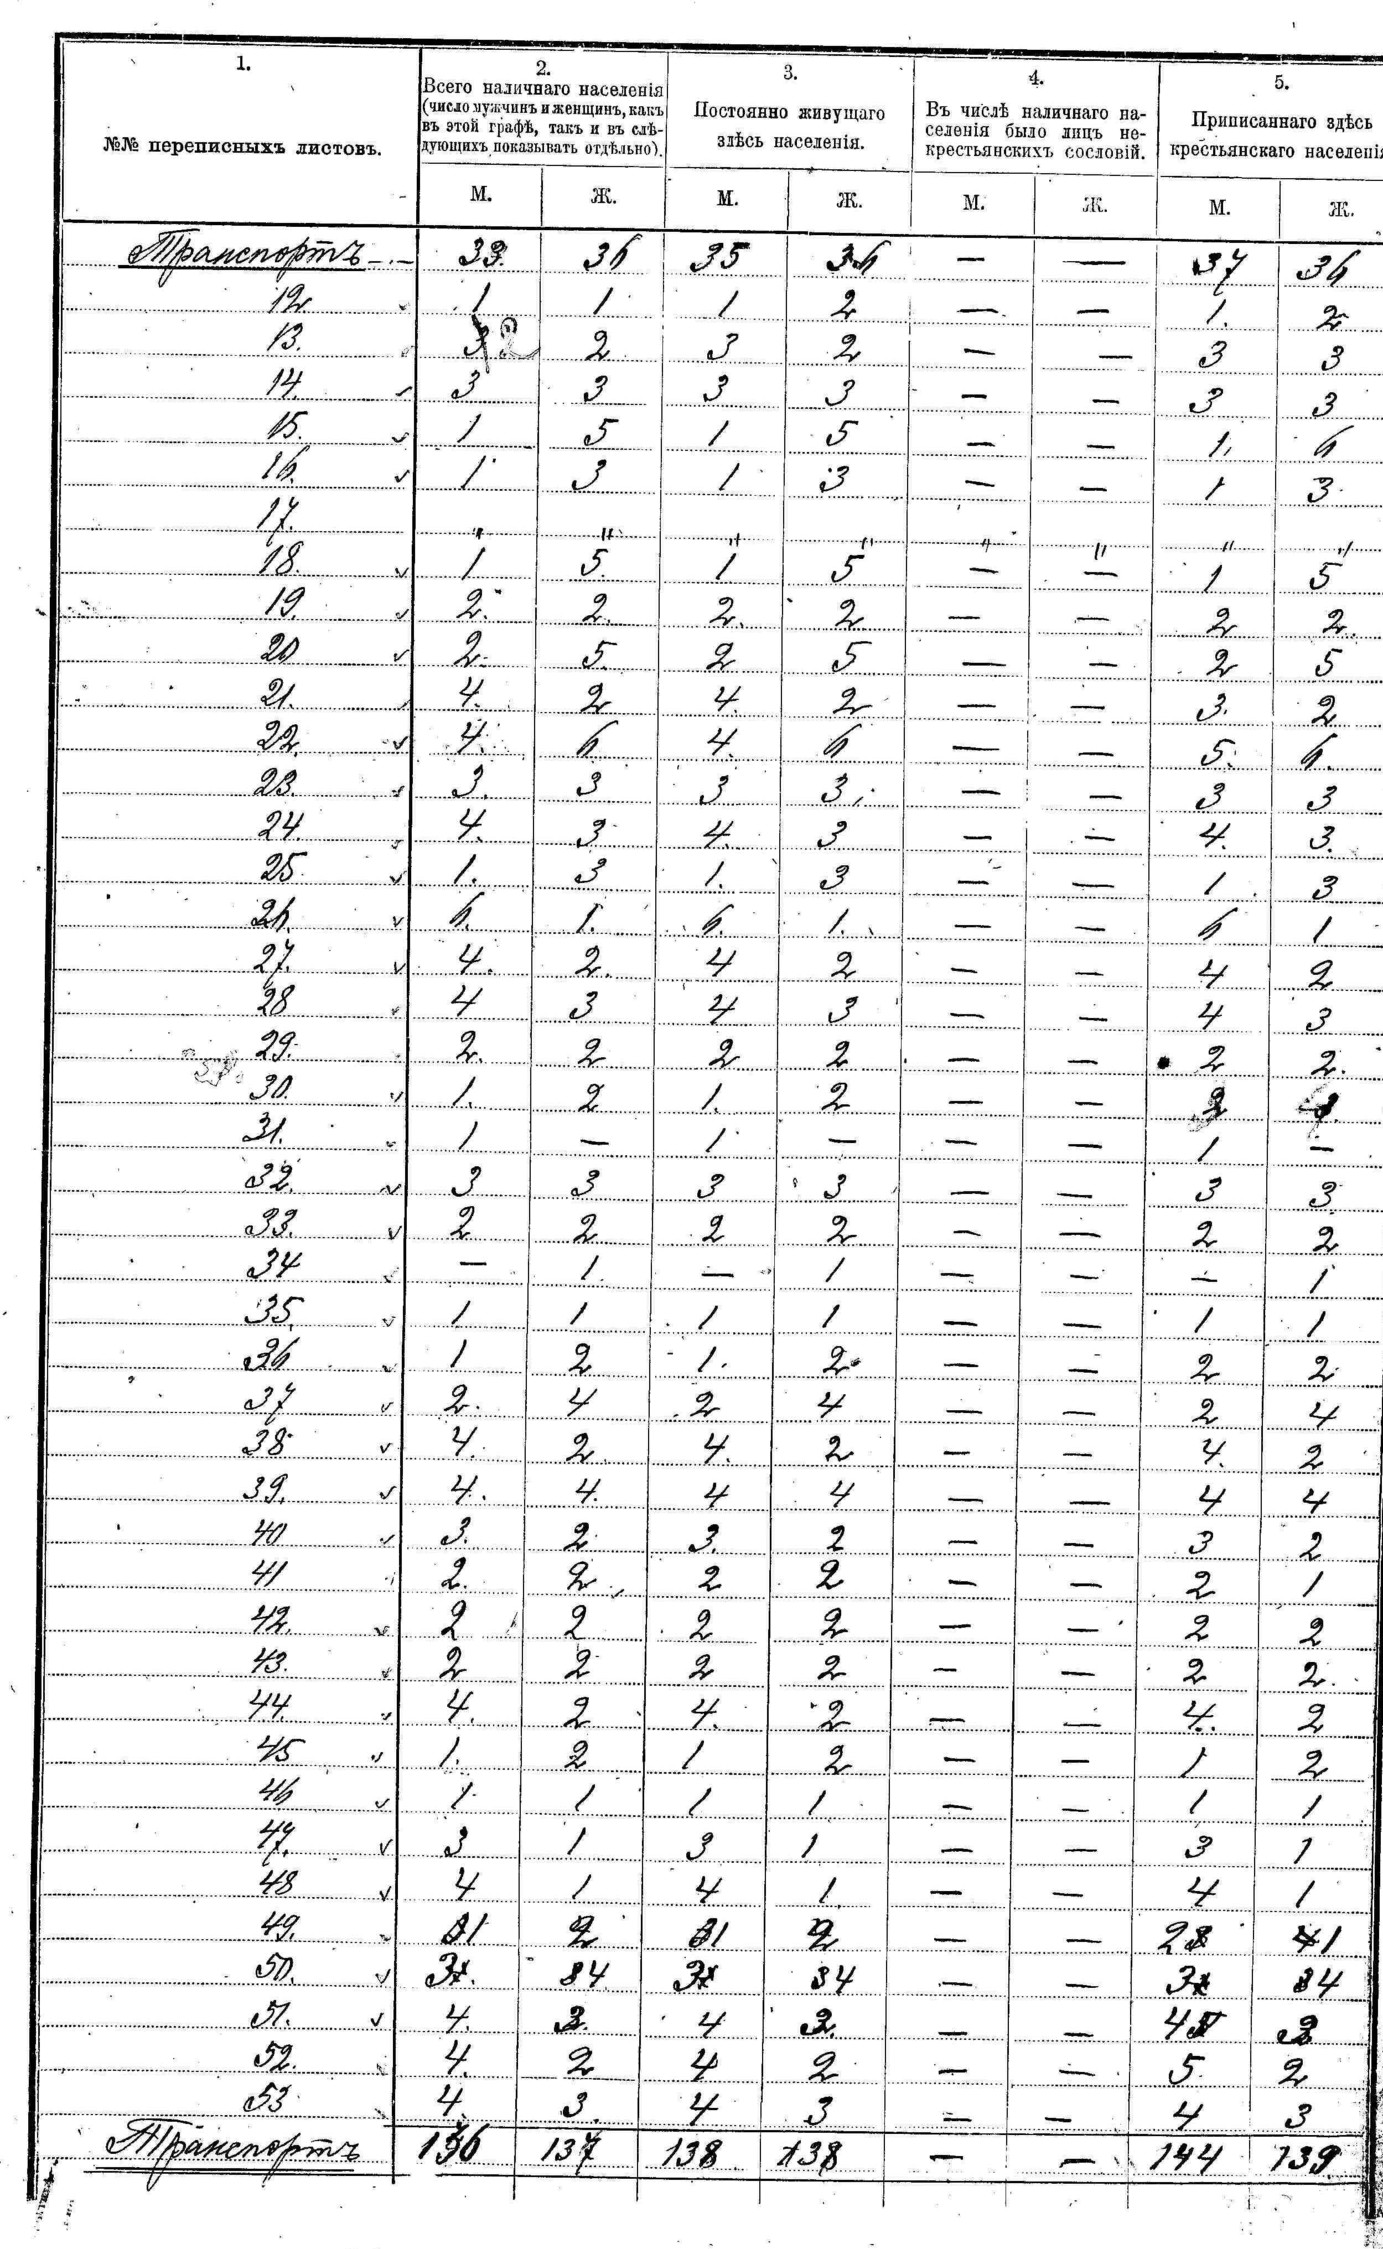 1. 2. 3. 4. 5.
№№ переписныхъ листовъ.
Всего наличнаго населенія
(число мужчинъ и женщинъ, какъ
въ этой графѣ, такъ и въ слѣ-
дующихъ показывать отдѣльно).
Постоянно живущаго
здѣсь населенія.
Въ числѣ наличнаго на-
селенія было лицъ не-
крестьянскихъ сословій.
Приписаннаго здѣсь
крестьянскаго населенія
М. Ж. М. Ж. М. Ж. М. Ж.
Транспортъ 33. 36 35 36 — — 37 36
12 1 1 1 2 — — 1. 2
13. 2 2 3 2 — — 3 3
14. 3 3 3 3 — — 3 3
15. 1 5 1 5 — — 1, 6
16. 1 3 1 3 — — 1 3
17. " " " " " " " "
18. 1 5. 1 5 — — 1 5
19. 2. 2. 2. 2. — — 2 2.
20 2. 5. 2 5 — — 2 5
21. 4. 2 4. 2 — — 3. 2
22. 4. 6 4. 6 — — 5. 6.
23. 3. 3 3 3, — — 3 3
24. 4. 3 4. 3 — — 4. 3.
25 1. 3 1. 3 — — 1 3
26. 6. 1. 6. 1. — — 6 1
27. 4. 2. 4 2 — — 4 2
28 4 3 4 3 — — 4 3
29. 2. 2 2 2 — — 2 2.
30. 1. 2 1. 2 — —
31. 1 — 1 — — — 1 —
32. 3 3 3 3 — — 3 3
33. 2 2 2 2 — — 2 2
34 — 1 — 1 — — — 1
35. 1 1 1 1 — — 1 1
36 1 2 1. 2 — — 2 2
37 2. 4 2 4 — — 2 4
38 4. 2 4. 2 — — 4. 2
39. 4. 4. 4 4 — — 4 4
40 3. 2 3. 2 — — 3 2
41 2. 2 2 2 — — 2 1
42. 2 2 2 2 — — 2 2
43. 2 2 2 2 — — 2 2.
44. 4. 2 4. 2 — — 4. 2
45 1. 2 1 2 — — 1 2
46 1 1 1 1 — — 1 1
47. 3 1 3 1 — — 3 1
48 4 1 4 1 — — 4 1
49. 1 2 1 2 — — 2 1
50. 3 4 3 4 — — 3 4
51. 4. 4 — — 4
52. 4. 2 4 2 — — 5 2
53 4 3. 4 3 — — 4 3
Транспортъ 136 137 138 138 — — 144 139